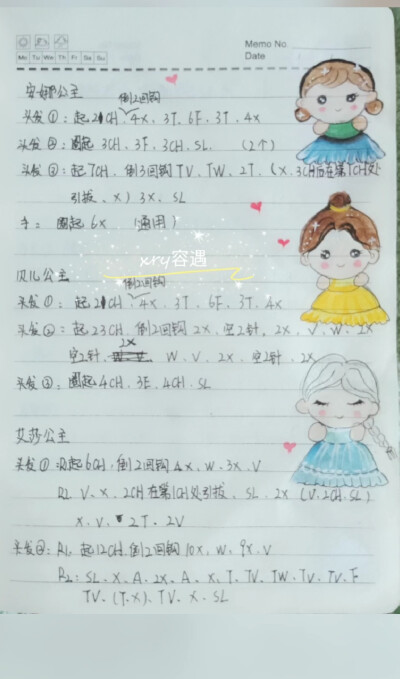 Memo No.
Date
Mo Tu We Th Fr Sa Su
安娜公主
倒2回钩
头发①：起21CH、4X、3T、6F、3T、4X
头发②：圈起 3CH、3F、3CH、SL、（2个）
头发③：起7CH、倒3回钩 TV、TW、2T、（X、3CH后在第1CH处
引拔、X）3X、SL
手：圈起6X （通用）
xry容遇
贝儿公主
倒2回钩
头发①：起21CH、4X、3T、6F、3T、4X
头发②：起23CH、倒2回钩 2X、空2针、2X、V、W、2X
空2针、2X、W、V、2X、空2针、2X
头发③：圈起4CH、3E、4CH、SL
艾莎公主
头发① 起6CH、倒2回钩4X、W、3X、V
R2 V、X、2CH在第1CH处引拔、SL、2X（V、2CH、SL）
X、V、2T、2V
头发②：R1、起12CH、倒2回钩10X、W、9X、V
R2：SL、X、A、2X、A、X、T、TV、TW、TV、TV、F
TV、（T、X）、TV、X、SL